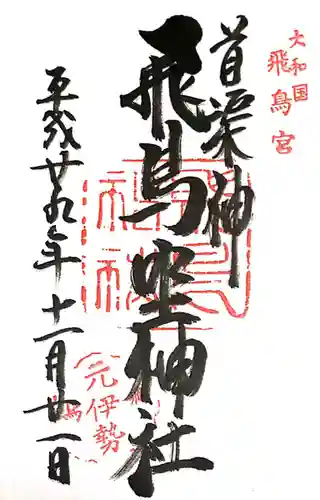 大和国
飛鳥宮
首渠神
飛鳥坐神社
平成廿九年十一月廿一日
(元伊勢)